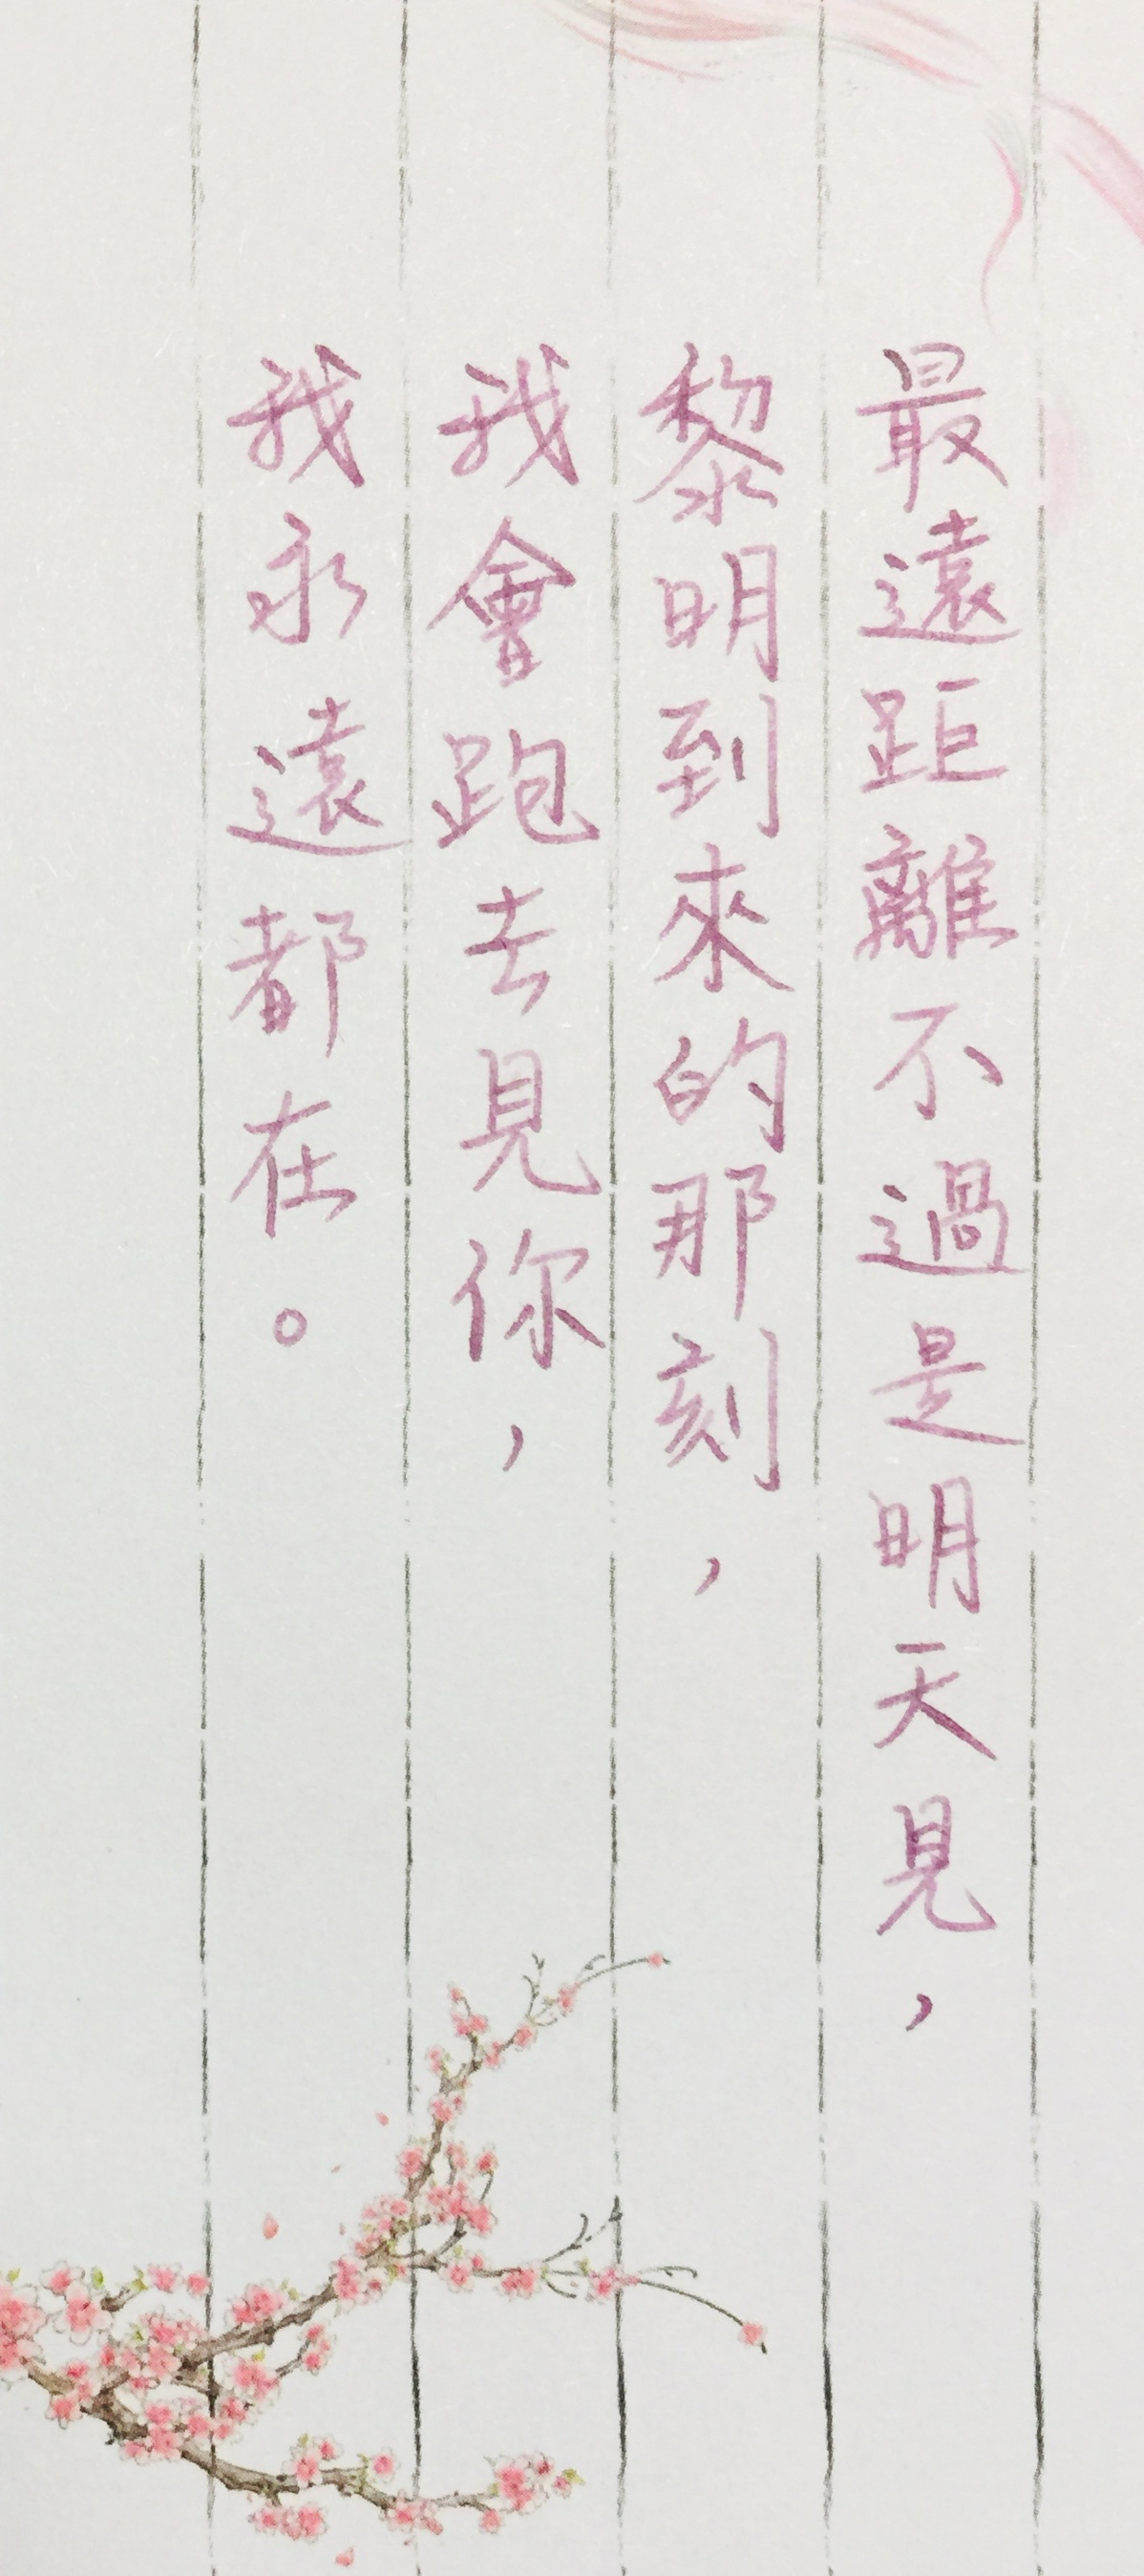 最遠距離不過是明天見，
黎明到來的那刻，
我會跑去見你，
我永遠都在。